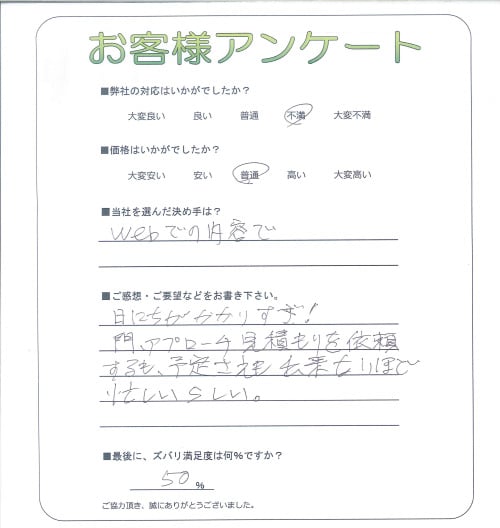 お客様アンケート
■弊社の対応はいかがでしたか？
大変良い 良い 普通 不満 大変不満
■価格はいかがでしたか？
大変安い 安い 普通 高い 大変高い
■当社を選んだ決め手は？
Webでの内容で
■ご感想・ご要望などをお書き下さい。
日にちがかかりすぎ！
門、アプローチ見積もりを依頼
するも、予定さえも出来ないほど
忙しいらしい。
■最後に、ズバリ満足度は何%ですか？
50 %
ご協力頂き、誠にありがとうございました。